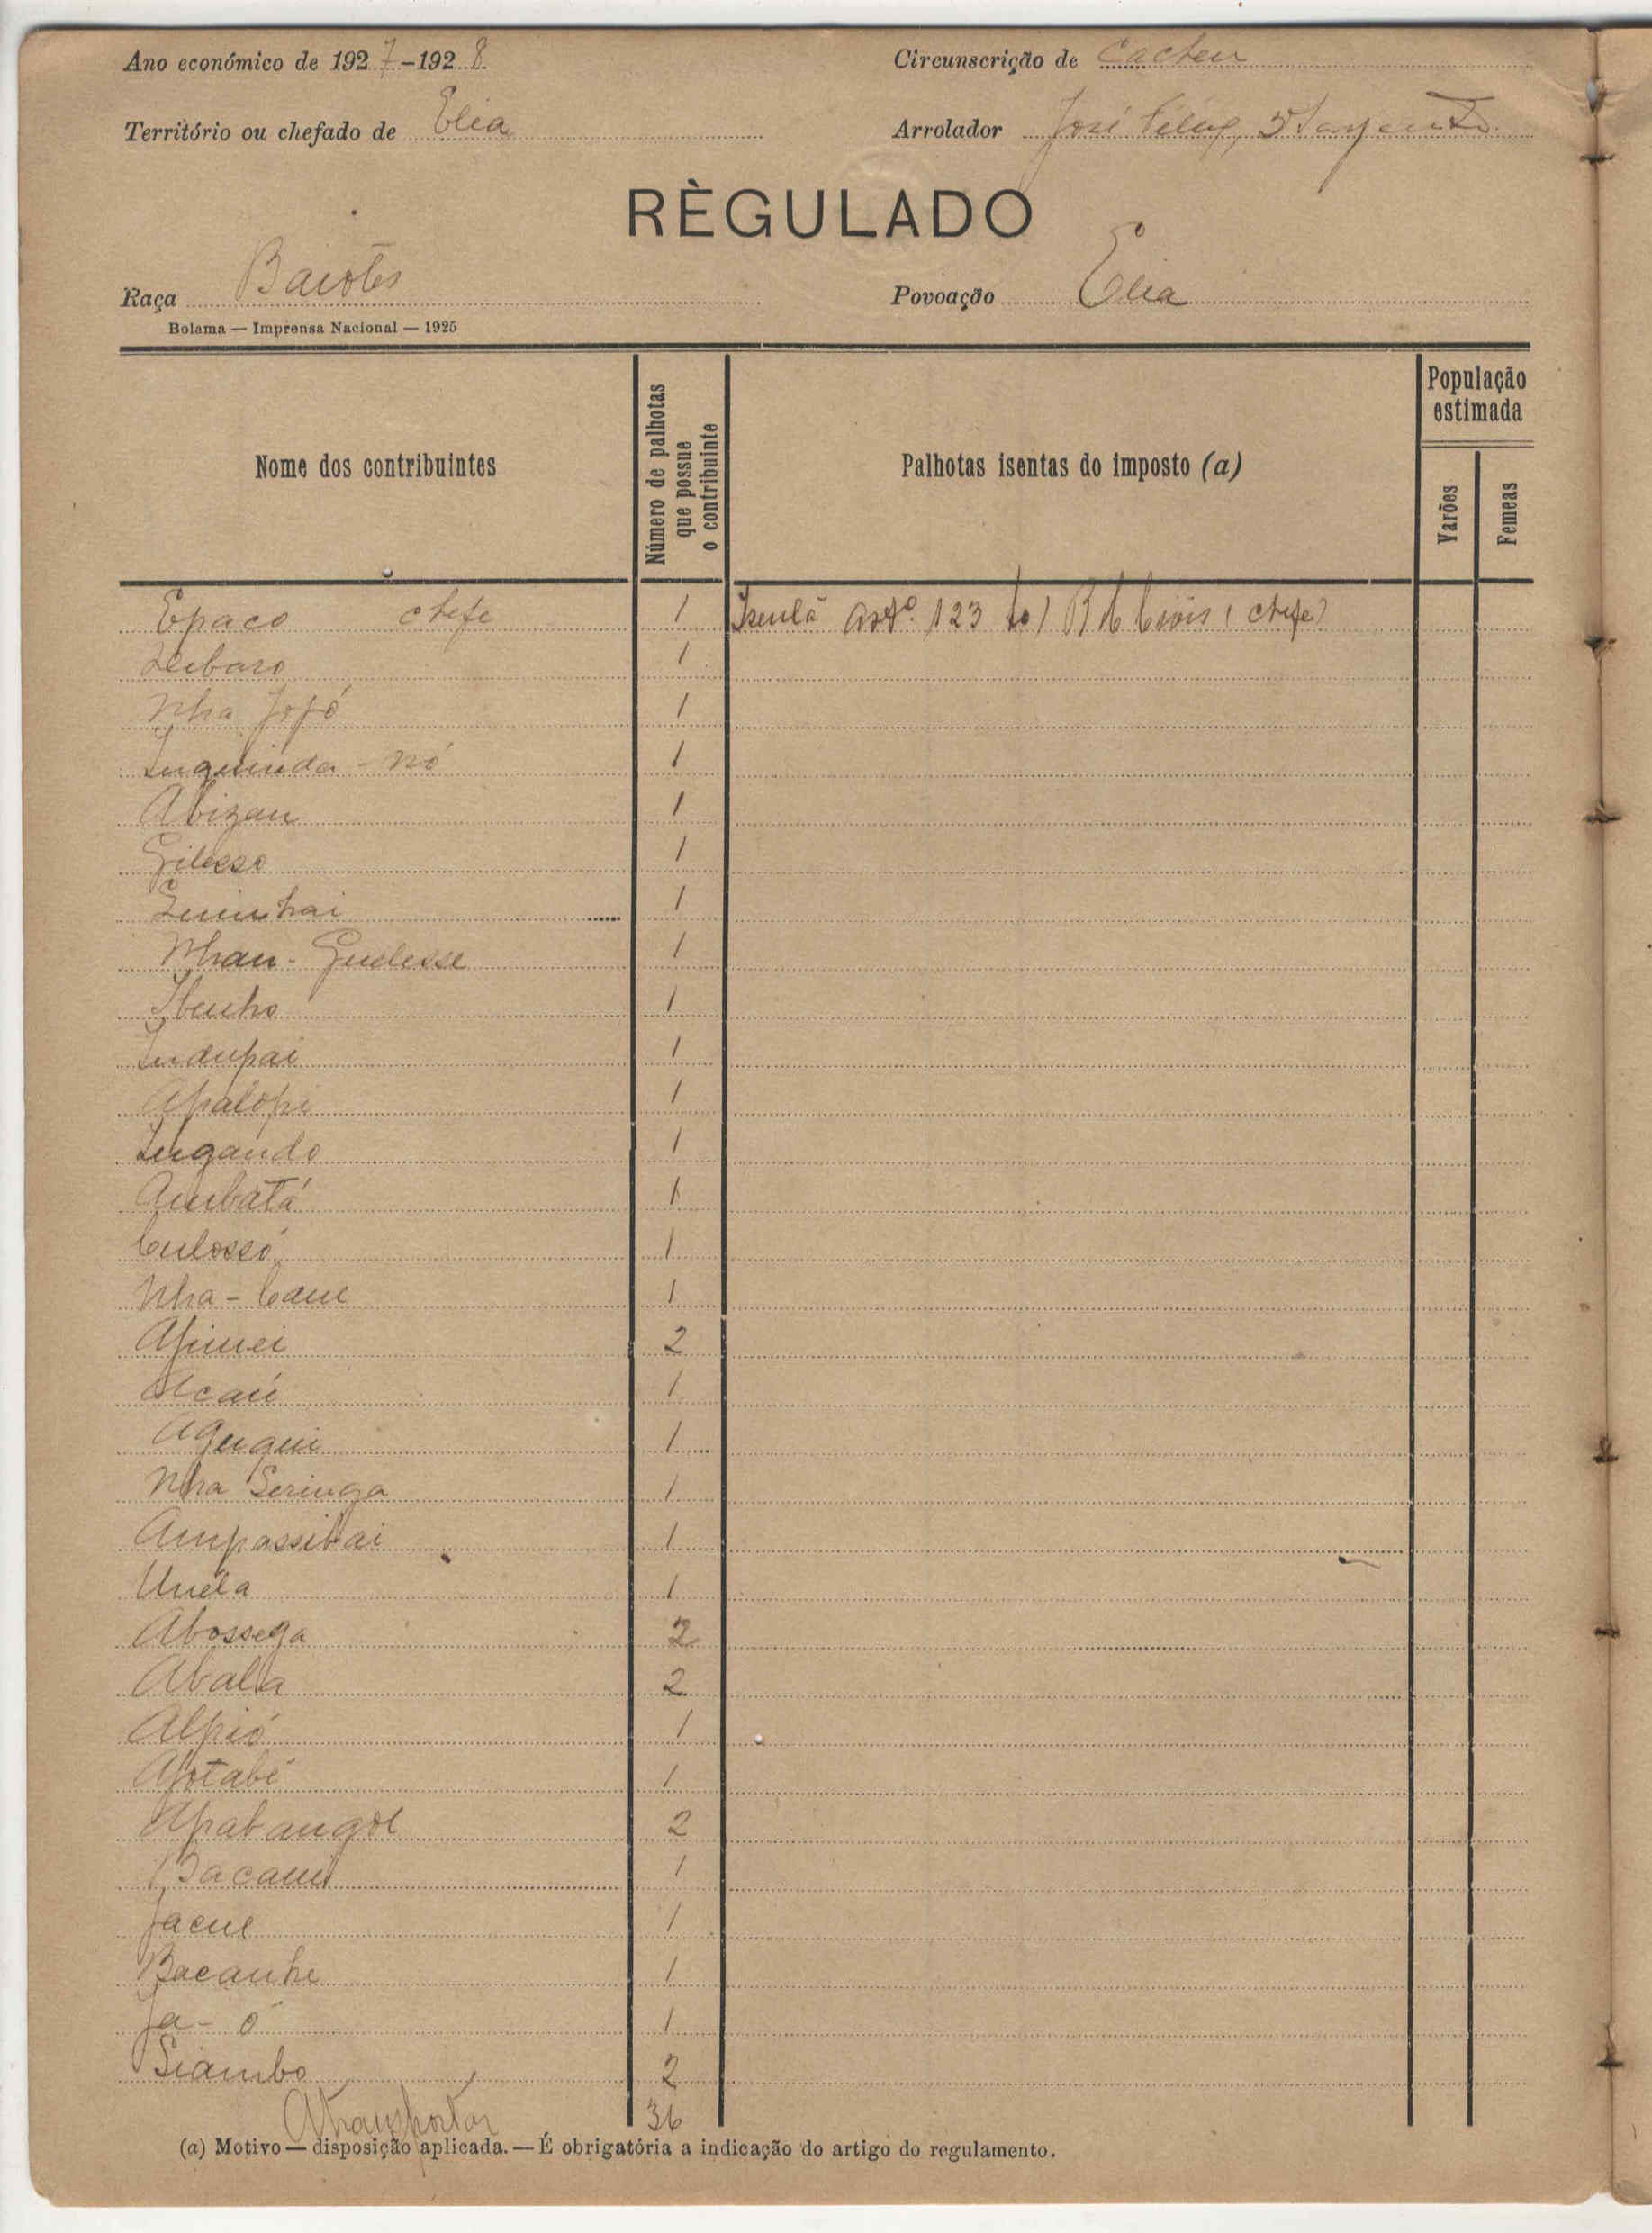 Ano económico de 1927-1928 Circunscrição de Cacheu
Território ou chefado de Elia Arrolador José 5 Sargento
RÈGULADO
Raça Baiotes Povoação Elia
Bolama — Imprensa Nacional — 1925
Nome dos contribuintes
Número de palhotas que possue o contribuinte
Palhotas isentas do imposto (a)
População estimada
Varões
Femeas
Epaco chefe 1 artº. 123 Civis (chefe)
1
Nha Jofó 1
nó 1
Abizau 1
Gilesso 1
1
Nhau-Gudesse 1
1
Indupai 1
Apalópi 1
Lugando 1
Ambatá 1
Culossó 1
Nha-Caue 1
2
Acaú 1
1
Nha Seringa 1
1
Unéla 1
Abossega 2
Abala 2
Alpió 1
Apotabé 1
Apabangol 2
1
Jacul 1
Bacanhe 1
Ja-ó 1
Siambo 2
A transportar 36
(a) Motivo — disposição aplicada. — É obrigatória a indicação do artigo do regulamento.